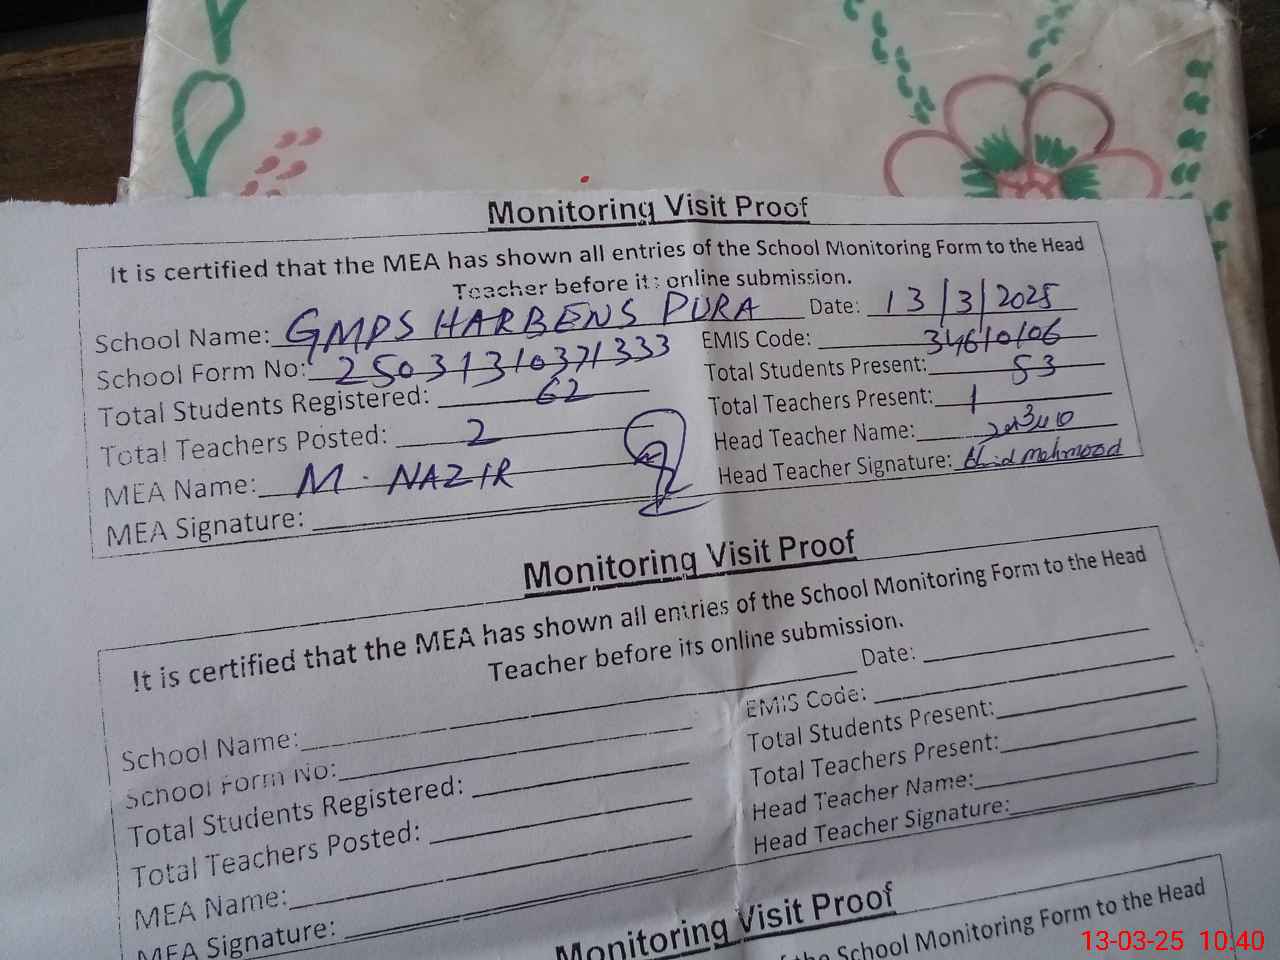 Monitoring Visit Proof
It is certified that the MEA has shown all entries of the School Monitoring Form to the Head
Teacher before its online submission.
School Name: GMPS HARBENS PURA Date: 13/3/2025
School Form No: 25031310371333 EMIS Code: 34610106
Total Students Registered: 62 Total Students Present: 53
Total Teachers Posted: 2 Total Teachers Present: 1
MEA Name: M. NAZIR Head Teacher Name:
MEA Signature: Head Teacher Signature: Mehmood
Monitoring Visit Proof
It is certified that the MEA has shown all entries of the School Monitoring Form to the Head
Teacher before its online submission.
School Name: Date:
School Form No: EMIS Code:
Total Students Registered: Total Students Present:
Total Teachers Posted: Total Teachers Present:
MEA Name: Head Teacher Name:
MEA Signature: Head Teacher Signature:
Monitoring Visit Proof
the School Monitoring Form to the Head
13-03-25 10:40